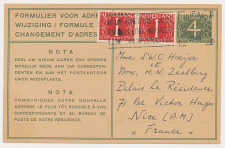 FORMULIER VOOR ADRES
WIJZIGING / FORMULE
CHANGEMENT D'ADRES
4
NOTA
DEEL UW NIEUWE ADRES ZOO SPOEDIG
MOGELIJK MEDE AAN UW CORRESPONDEN-
TEN EN AAN HET POSTKANTOOR
UWER WOONPLAATS.
NOTA
COMMUNIQUEZ VOTRE NOUVELLE
ADRESSE LE PLUS TÔT POSSIBLE À VOS
CORRESPONDANTS ET AU BUREAU DE
POSTE DE VOTRE RÉSIDENCE.
Mme SWC Hooyer
Palais La Résidence
71 Bd. Victor Hugo
Nice (A.M.)
France